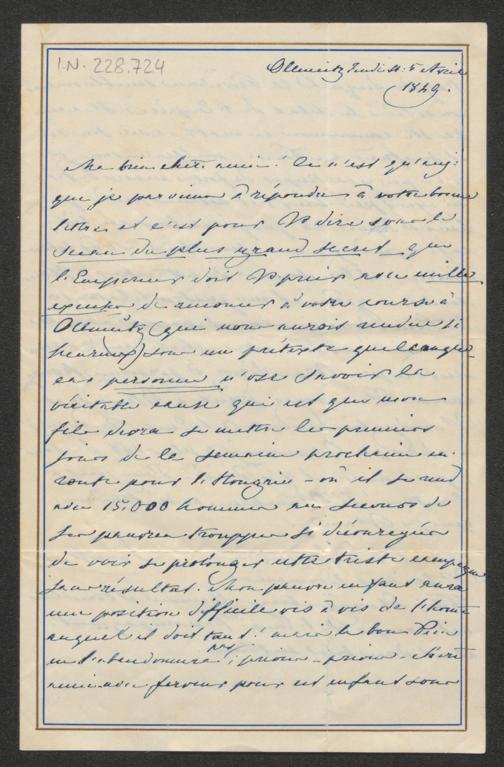 I.N. 228.724
Ollmütz Jeudi 5 Avril
1849.
Ma bien chère amie! Ce n'est qu'auj:
que je parviens à répondre à votre bonne
lettre et c'est pour V. dire sous le
sceau du plus grand secret que
l'Empereur doit V. prier avec mille
excuses de renoncer à votre course à
Ollmütz (qui nous auroit rendue si
heureux) sous un prétexte quelconque
car personne n'ose savoir la
véritable cause qui est que mon
fils devra se mettre les premiers
jours de la semaine prochaine en
route pour l'Hongrie – où il se rend
avec 15.000 hommes au secours de
ses pauvres trouppes si découragées
de voir se prolonger cette triste campagne
sans résultat. Mon pauvre enfant aura
une position difficile vis à vis de l'homme
auquel il doit tant! mais le bon Dieu
ne l'abandonnera pas; prions – prions –
amie avec ferveur pour cet enfant sous